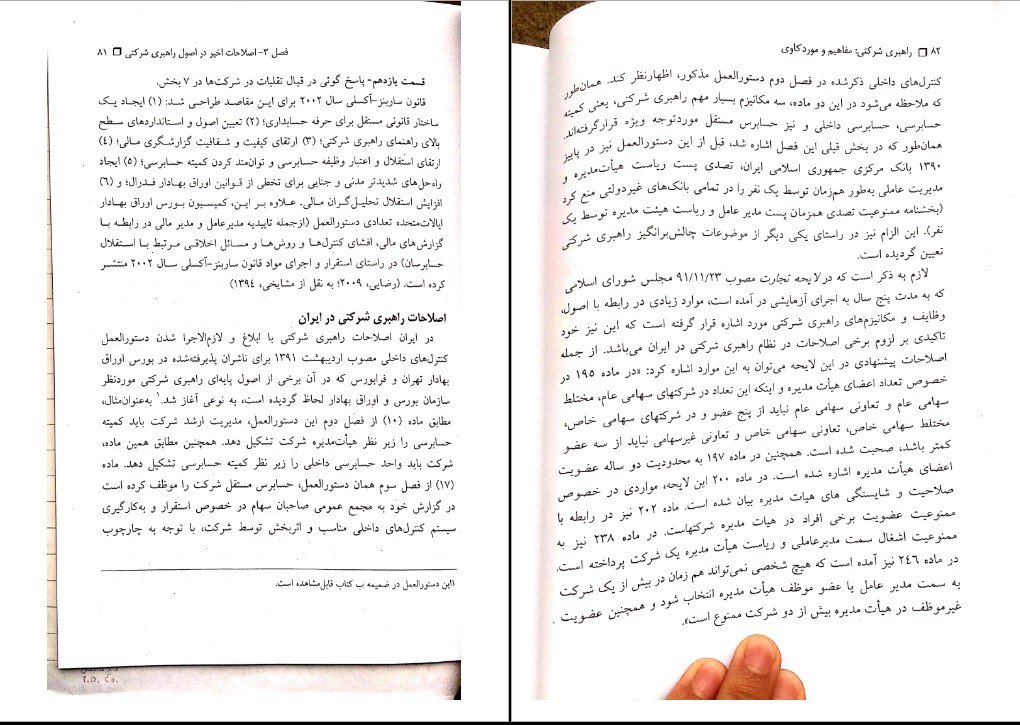 فصل ۳- اصلاحات اخیر در اصول راهبری شرکتی ❐ ۸۱
قسمت یازدهم- پاسخ گوئی در قبال تقلبات در شرکت‌ها در ۷ بخش.
قانون ساربنز-آکسلی سال ۲۰۰۲ برای این مقاصد طراحی شد: (۱) ایجاد یک
ساختار قانونی مستقل برای حرفه حسابداری؛ (۲) تعیین اصول و استانداردهای سطح
بالای راهنمای راهبری شرکتی؛ (۳) ارتقای کیفیت و شفافیت گزارشگری مالی؛ (۴)
ارتقای استقلال و اعتبار وظیفه حسابرسی و توان‌مند کردن کمیته حسابرسی؛ (۵) ایجاد
راه‌حل‌های شدیدتر مدنی و جنایی برای تخطی از قوانین اوراق بهادار فدرال؛ و (۶)
افزایش استقلال تحلیل‌گران مالی. علاوه بر این، کمیسیون بورس اوراق بهادار
ایالات‌متحده تعدادی دستورالعمل (ازجمله تاییدیه مدیرعامل و مدیر مالی در رابطه با
گزارش‌های مالی، افشای کنترل‌ها و روش‌ها و مسائل اخلاقی مرتبط با استقلال
حسابرسان) در راستای استقرار و اجرای مواد قانون ساربنز-آکسلی سال ۲۰۰۲ منتشر
کرده است. (رضایی، ۲۰۰۹؛ به نقل از مشایخی، ۱۳۹٤)
اصلاحات راهبری شرکتی در ایران
در ایران اصلاحات راهبری شرکتی با ابلاغ و لازم‌الاجرا شدن دستورالعمل
کنترل‌های داخلی مصوب اردیبهشت ۱۳۹۱ برای ناشران پذیرفته‌شده در بورس اوراق
بهادار تهران و فرابورس که در آن برخی از اصول پایه‌ای راهبری شرکتی موردنظر
سازمان بورس و اوراق بهادار لحاظ گردیده است، به نوعی آغاز شد.۱ به‌عنوان‌مثال،
مطابق ماده (۱۰) از فصل دوم این دستورالعمل، مدیریت ارشد شرکت باید کمیته
حسابرسی را زیر نظر هیأت‌مدیره شرکت تشکیل دهد. همچنین مطابق همین ماده،
شرکت باید واحد حسابرسی داخلی را زیر نظر کمیته حسابرسی تشکیل دهد. ماده
(۱۷) از فصل سوم همان دستورالعمل، حسابرس مستقل شرکت را موظف کرده است
در گزارش خود به مجمع عمومی صاحبان سهام در خصوص استقرار و به‌کارگیری
سیستم کنترل‌های داخلی مناسب و اثربخش توسط شرکت، با توجه به چارچوب
۱این دستورالعمل در ضمیمه ب کتاب قابل‌مشاهده است.
T.D. Co.
۸۲ ❐ راهبری شرکتی: مفاهیم و موردکاوی
کنترل‌های داخلی ذکرشده در فصل دوم دستورالعمل مذکور، اظهارنظر کند. همان‌طور
که ملاحظه می‌شود در این دو ماده، سه مکانیزم بسیار مهم راهبری شرکتی، یعنی کمیته
حسابرسی، حسابرسی داخلی و نیز حسابرس مستقل موردتوجه ویژه قرارگرفته‌اند.
همان‌طور که در بخش قبلی این فصل اشاره شد، قبل از این دستورالعمل نیز در پاییز
۱۳۹۰ بانک مرکزی جمهوری اسلامی ایران، تصدی پست ریاست هیأت‌مدیره و
مدیریت عاملی به‌طور هم‌زمان توسط یک نفر را در تمامی بانک‌های غیردولتی منع کرد
(بخشنامه ممنوعیت تصدی همزمان پست مدیر عامل و ریاست هیئت مدیره توسط یک
نفر). این الزام نیز در راستای یکی دیگر از موضوعات چالش‌برانگیز راهبری شرکتی
تعیین گردیده است.
لازم به ذکر است که در لایحه تجارت مصوب ۹۱/۱۱/۲۳ مجلس شورای اسلامی
که به مدت پنج سال به اجرای آزمایشی در آمده است، موارد زیادی در رابطه با اصول،
وظایف و مکانیزم‌های راهبری شرکتی مورد اشاره قرار گرفته است که این نیز خود
تاکیدی بر لزوم برخی اصلاحات در نظام راهبری شرکتی در ایران می‌باشد. از جمله
اصلاحات پیشنهادی در این لایحه می‌توان به این موارد اشاره کرد: «در ماده ۱۹۵ در
خصوص تعداد اعضای هیأت مدیره و اینکه این تعداد در شرکتهای سهامی عام، مختلط
سهامی عام و تعاونی سهامی عام نباید از پنج عضو و در شرکتهای سهامی خاص،
مختلط سهامی خاص، تعاونی سهامی خاص و تعاونی غیرسهامی نباید از سه عضو
کمتر باشد، صحبت شده است. همچنین در ماده ۱۹۷ به محدودیت دو ساله عضویت
اعضای هیأت مدیره اشاره شده است. در ماده ۲۰۰ این لایحه، مواردی در خصوص
صلاحیت و شایستگی های هیات مدیره بیان شده است. ماده ۲۰۲ نیز در رابطه با
ممنوعیت عضویت برخی افراد در هیات مدیره شرکتهاست. در ماده ۲۳۸ نیز به
ممنوعیت اشغال سمت مدیرعاملی و ریاست هیأت مدیره یک شرکت پرداخته است.
در ماده ۲٤٦ نیز آمده است که هیچ شخصی نمی‌تواند هم زمان در بیش از یک شرکت
به سمت مدیر عامل یا عضو موظف هیأت مدیره انتخاب شود و همچنین عضویت
غیرموظف در هیأت مدیره بیش از دو شرکت ممنوع است».